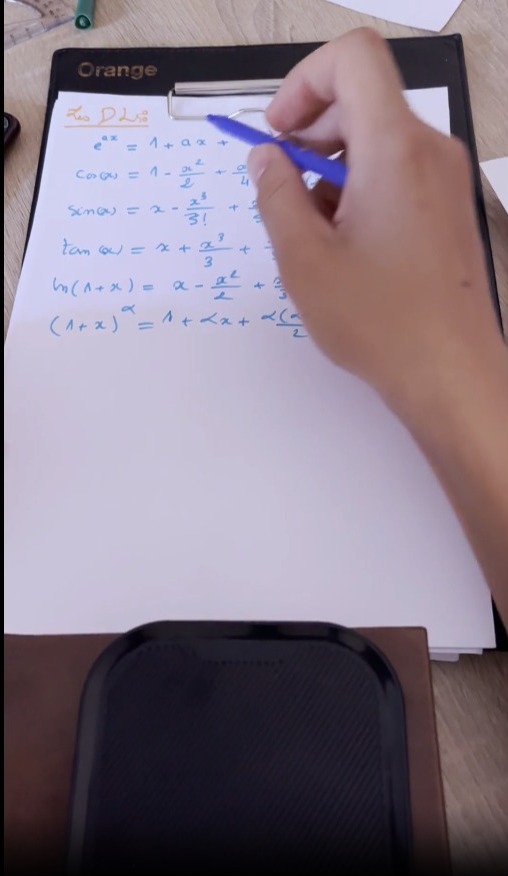 Orange
Les DLs:
e^{ax} = 1 + ax +
cos(x) = 1 - x²/2 +
sin(x) = x - x³/3! +
tan(x) = x + x³/3 +
ln(1+x) = x - x²/2 +
(1+x)^α = 1 + αx +